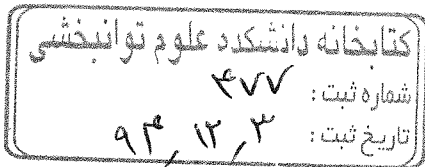 کتابخانه دانشکده علوم توانبخشی
شماره ثبت: ۴۷۷
تاریخ ثبت: ۹۴,۱۲,۳